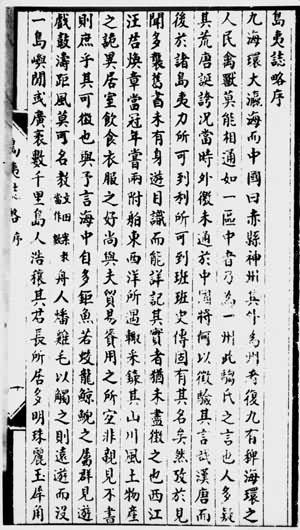 島夷誌略序
九海環大瀛海而中國曰赤縣神州其外為州者復九有裨海環之
人民禽獸莫能相通如一區中者乃為一州此騶氏之言也人多疑
其荒唐誕誇況當時外徼未通於中國將何以徵驗其言哉漢唐而
後於諸島夷力所可到利所可到班班史傳固有其名矣然考於見
聞多襲舊書未有身遊目識而能詳記其實者猶未盡徵之也西江
汪君煥章當冠年嘗兩附舶東西洋所過輒采錄其山川風土物產
之詭異居室飲食衣服之好尚與夫貿易賫用之所宜非親見不書
則庶乎其可徵也與予言海中自多鉅魚若蛟龍鯨鯢之屬群見遊
戲鼓濤距風莫可名數舟人燔雞毛以觸之則遠遊而沒
一島嶼間或廣袤數千里島人浩穰其君長所居多明珠麗玉犀角
島夷誌略 序